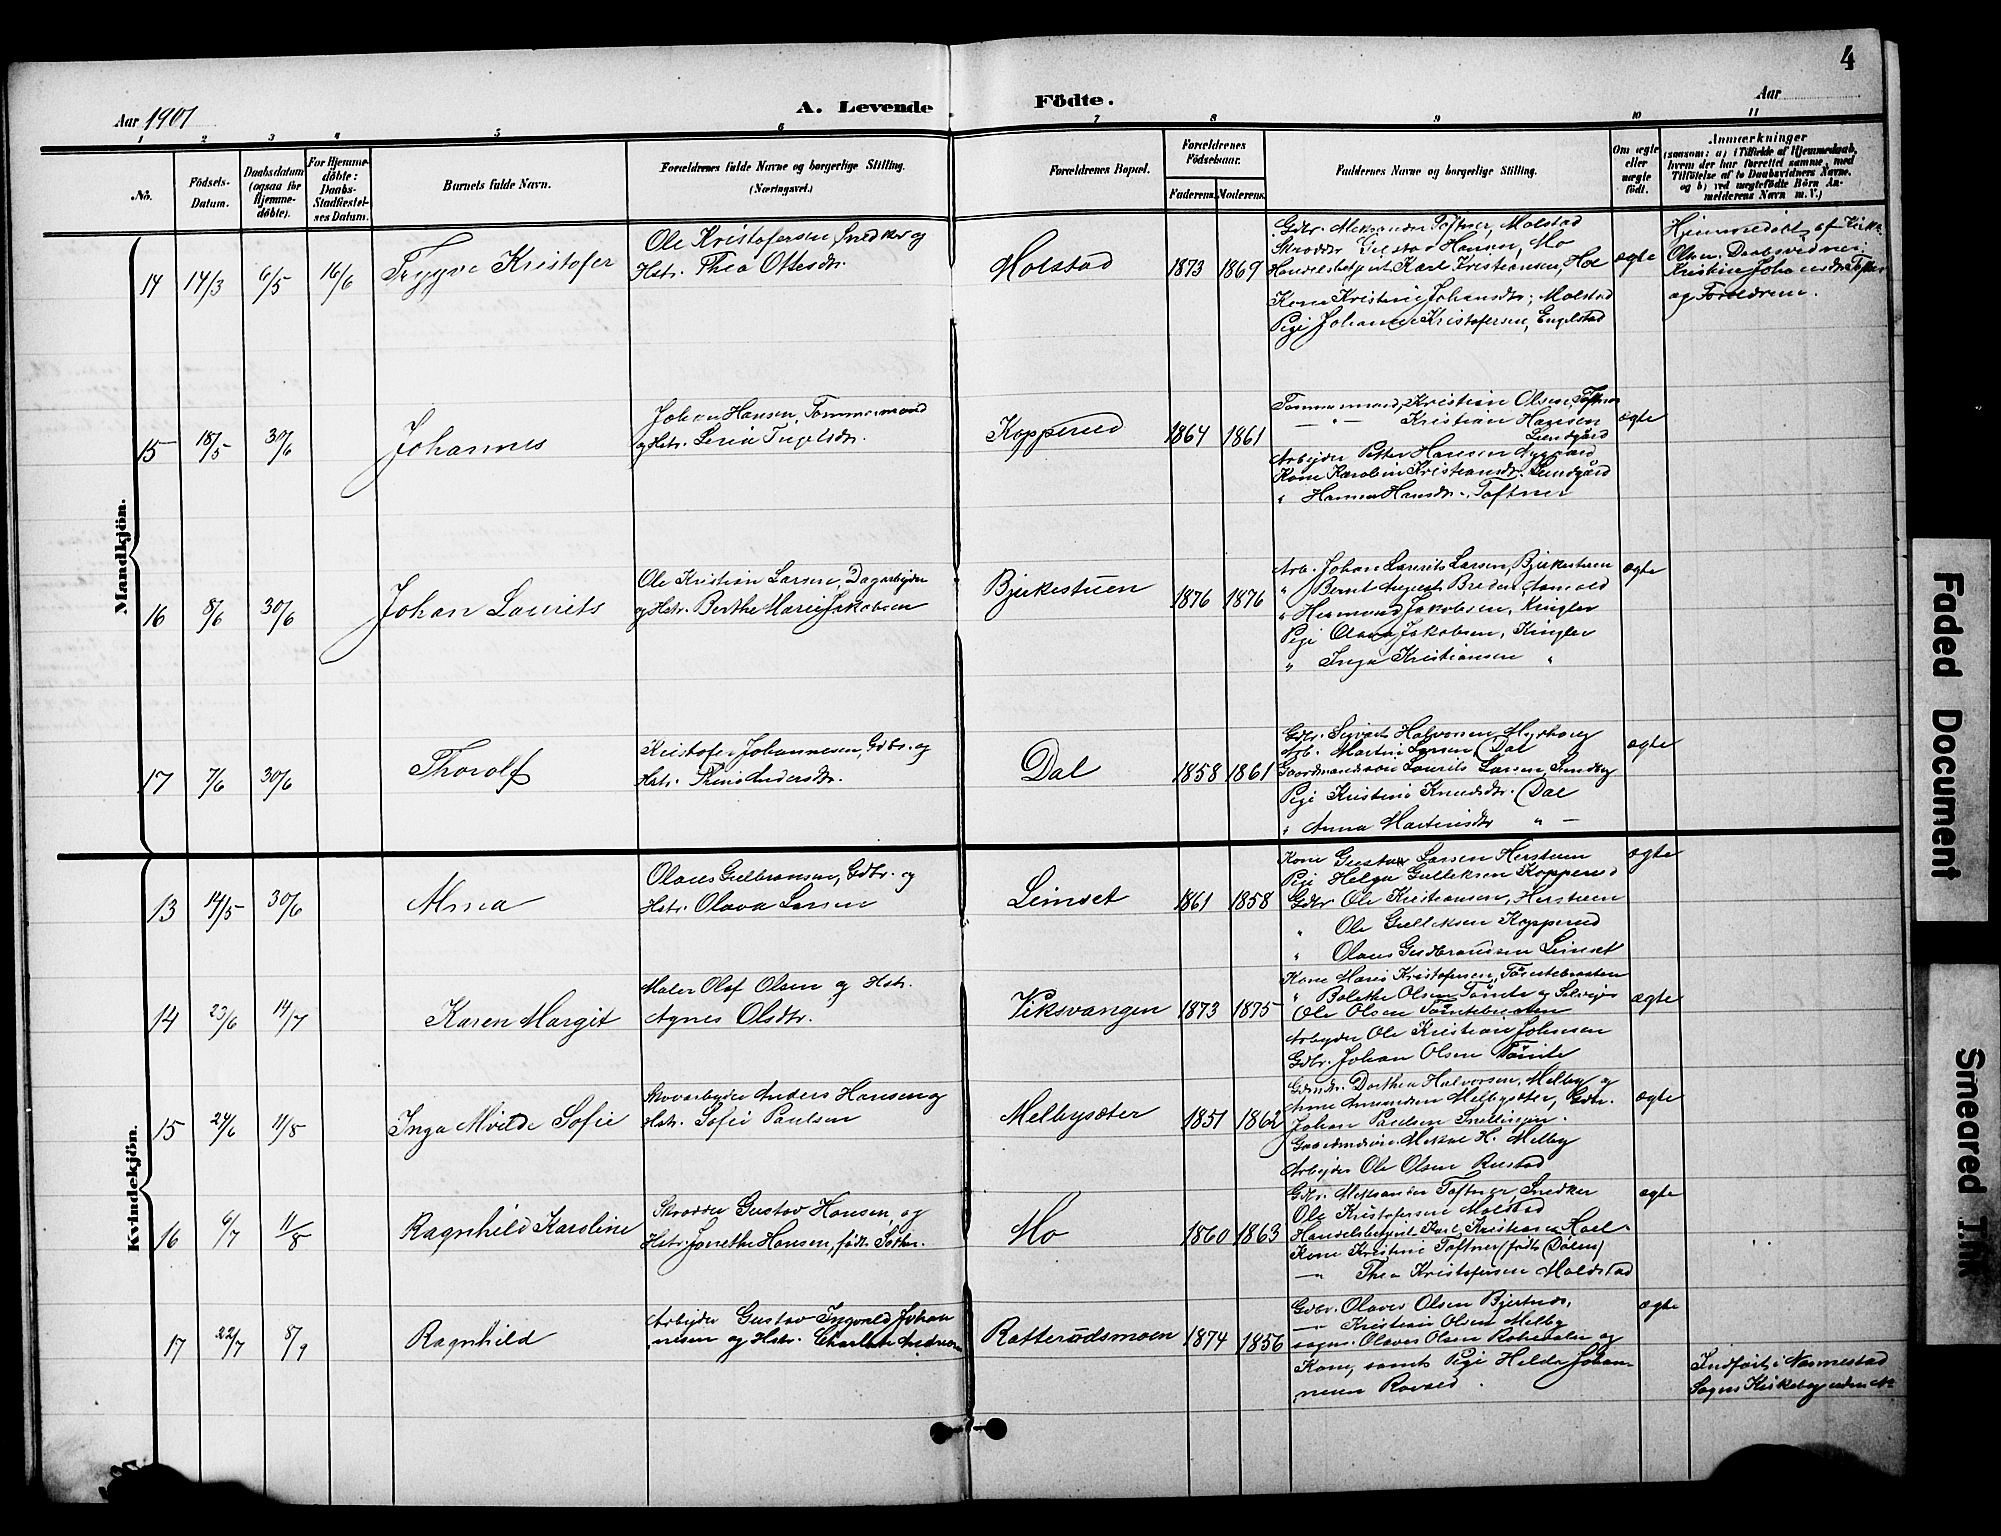 4
Aar 1901
A. Levende Födte.
Aar
1 2 3 4 5 6 7 8 9 10 11
No.
Födsels-Datum.
Daabsdatum (ogsaa for Hjemmedöbte).
For Hjemmedöbte: Daabs-Stadfæstelses Datum.
Barnets fulde Navn.
Forældrenes fulde Navne og borgerlige Stilling.
(Næringsvei.)
Forældrenes Bopæl.
Forældrenes Födselsaar.
Faderens. Moderens.
Faddernes Navne og borgerlige Stilling.
Om ægte eller uægte födt.
Anmærkninger
(saasom: a) i Tilfælde af Hjemmedaab, hvem der har forrettet samme, med Tilföielse af to Daabsvidners Navne, og b) ved uægtefödte Börn Anmelderens Navn m. V.)
Mandkjön.
14 14/3 6/5 16/6 Trygve Kristofer
Ole Kristofersen, Snedker og
Hstr. Thea Ottesdtr.
Molstad 1873 1869
Gdbr. Aleksander Toftner, Molstad
Skrædder Gustav Hansen, Mo
Handelsbetjent Karl Kristiansen, Hoel
Kone Kristine Johansdtr, Molstad
Pige Johanne Kristofersen, Engelstad
ægte
Hjemmedöbt af Kirks.
Olsen. Daabsvidner:
Kristine Johansdtr Toftner
og Forældrene.
15 18/5 30/6 Johannes
Johan Hansen, Tømmermand
og Hstr.
Kopperud 1864 1861
Tømmermand, Kristian Olsen, Toftner
— " — Kristian Hansen
Lundgård
Arbejder Petter Hansen
Kone Karoline Kristiansdtr. Lundgård
" Hanna Hansdtr., Toftner
ægte
16 8/6 30/6 Johan Laurits
Ole Kristian Larsen, Dagarbejder
og Hstr. Berthe Marie Jakobsen
Bjerkestuen 1876 1876
Arb. Johan Laurits Larsen, Bjerkestuen
" Bernt August
" Hermand Jakobsen, Kingler
Pige Olava Jakobsen, Kingler
" Inga Kristiansen "
ægte
17 7/6 30/6 Thorolf
Kristofer Johannesen, Gdbr. og
Hstr. Thrine Andersdtr.
Dal 1858 1861
Gdbr. Sigvart Halvorsen Myrborg
Arb. Martin Larsen Dal
Gaardmandssøn Laurits Larsen, Sundby
Pige Kristine Knudsdtr. Dal
" Anna Martinsdtr " —
ægte
Kvindekjön.
13 14/5 30/6 Alma
Olaus Gulbransen, Gdbr. og
Hstr. Olava Larsen
Limset 1861 1858
Kone Gusta Larsen Herstuen
Pige Helga Gulleksen Kopperud
Gdbr. Ole Kristiansen, Herstuen
" Ole Gulleksen Kopperud
" Olaus Guldbrandsen Limset
ægte
14 23/6 14/7 Karen Margit
Maler Olaf Olsen og Hstr.
Agnes Olsdtr.
Viksvangen 1873 1875
Kone Maria Kristofersen, Tömtebraaten
" Bolethe Olsen Tömte og
Ole Olsen Tömtebraaten
Arbejder Ole Kristian Johnsen
Gdbr. Johan Olsen Tömte
ægte
15 24/6 11/8 Inga Alvilde Sofie
Skovarbejder Anders Hansen og
Hstr. Sofie Paulsen
Melbysæter 1851 1862
Dorthea Halvorsen, Melby og
Anne Amundsen Melbysæter, Gdbr.
Johan Paulsen
Gaardmandssøn Mikal H. Melby
Arbejder Ole Olsen Rustad
ægte
16 6/7 11/8 Ragnhild Karoline
Skrædder Gustav Hansen og
Hstr. Janethe Hansen, født
Mo 1860 1863
Gdbr. Aleksander Toftner, Snedker
Ole Kristofersen Molstad
Handelsbetjent Karl Kristiansen Hoel
Kone Kristine Toftner (født Dölen)
— " Thea Kristofersen Molstad
ægte
17 22/7 8/9 Ragnhild
Arbejder Gustav Ingvald Johannesen og Hstr. Charlotte Andersen
Ratterudsmoen 1874 1856
Gdbr. Olaves Olsen Bjertnæs,
— " Kristian Olsen Melby
Olaves Olsen og
Kone, samt Pige Hilda Johannesen
ægte
Indført i Nannestad
Sogns Kirkebog uden №
Faded Document
Smeared Ink